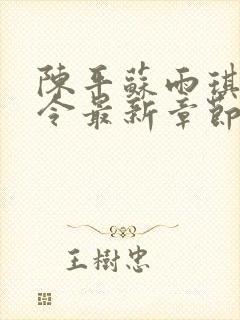 陳平蘇雨琪
令最新章節
王樹忠